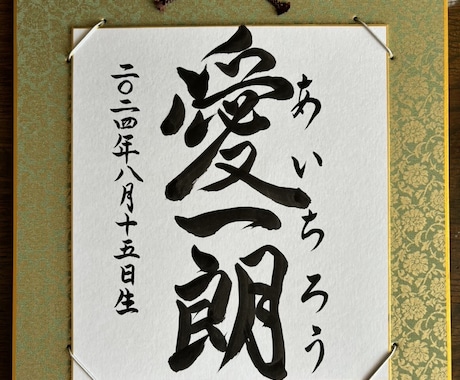 あいちろう
愛一朗
二〇二四年八月十五日生